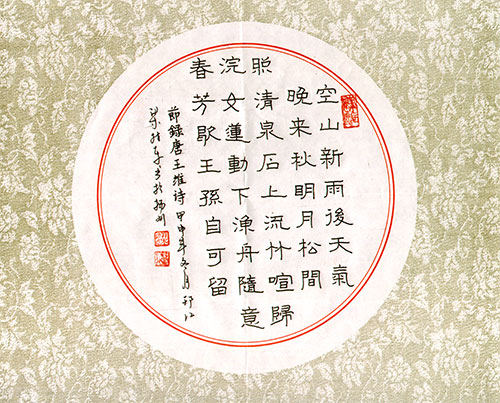 空山新雨後天氣
晚来秋明月松間
照清泉石上流竹喧歸
浣女蓮動下漁舟隨意
春芳歇王孫自可留
節錄唐王維诗甲申年冬月邗江
於揚州